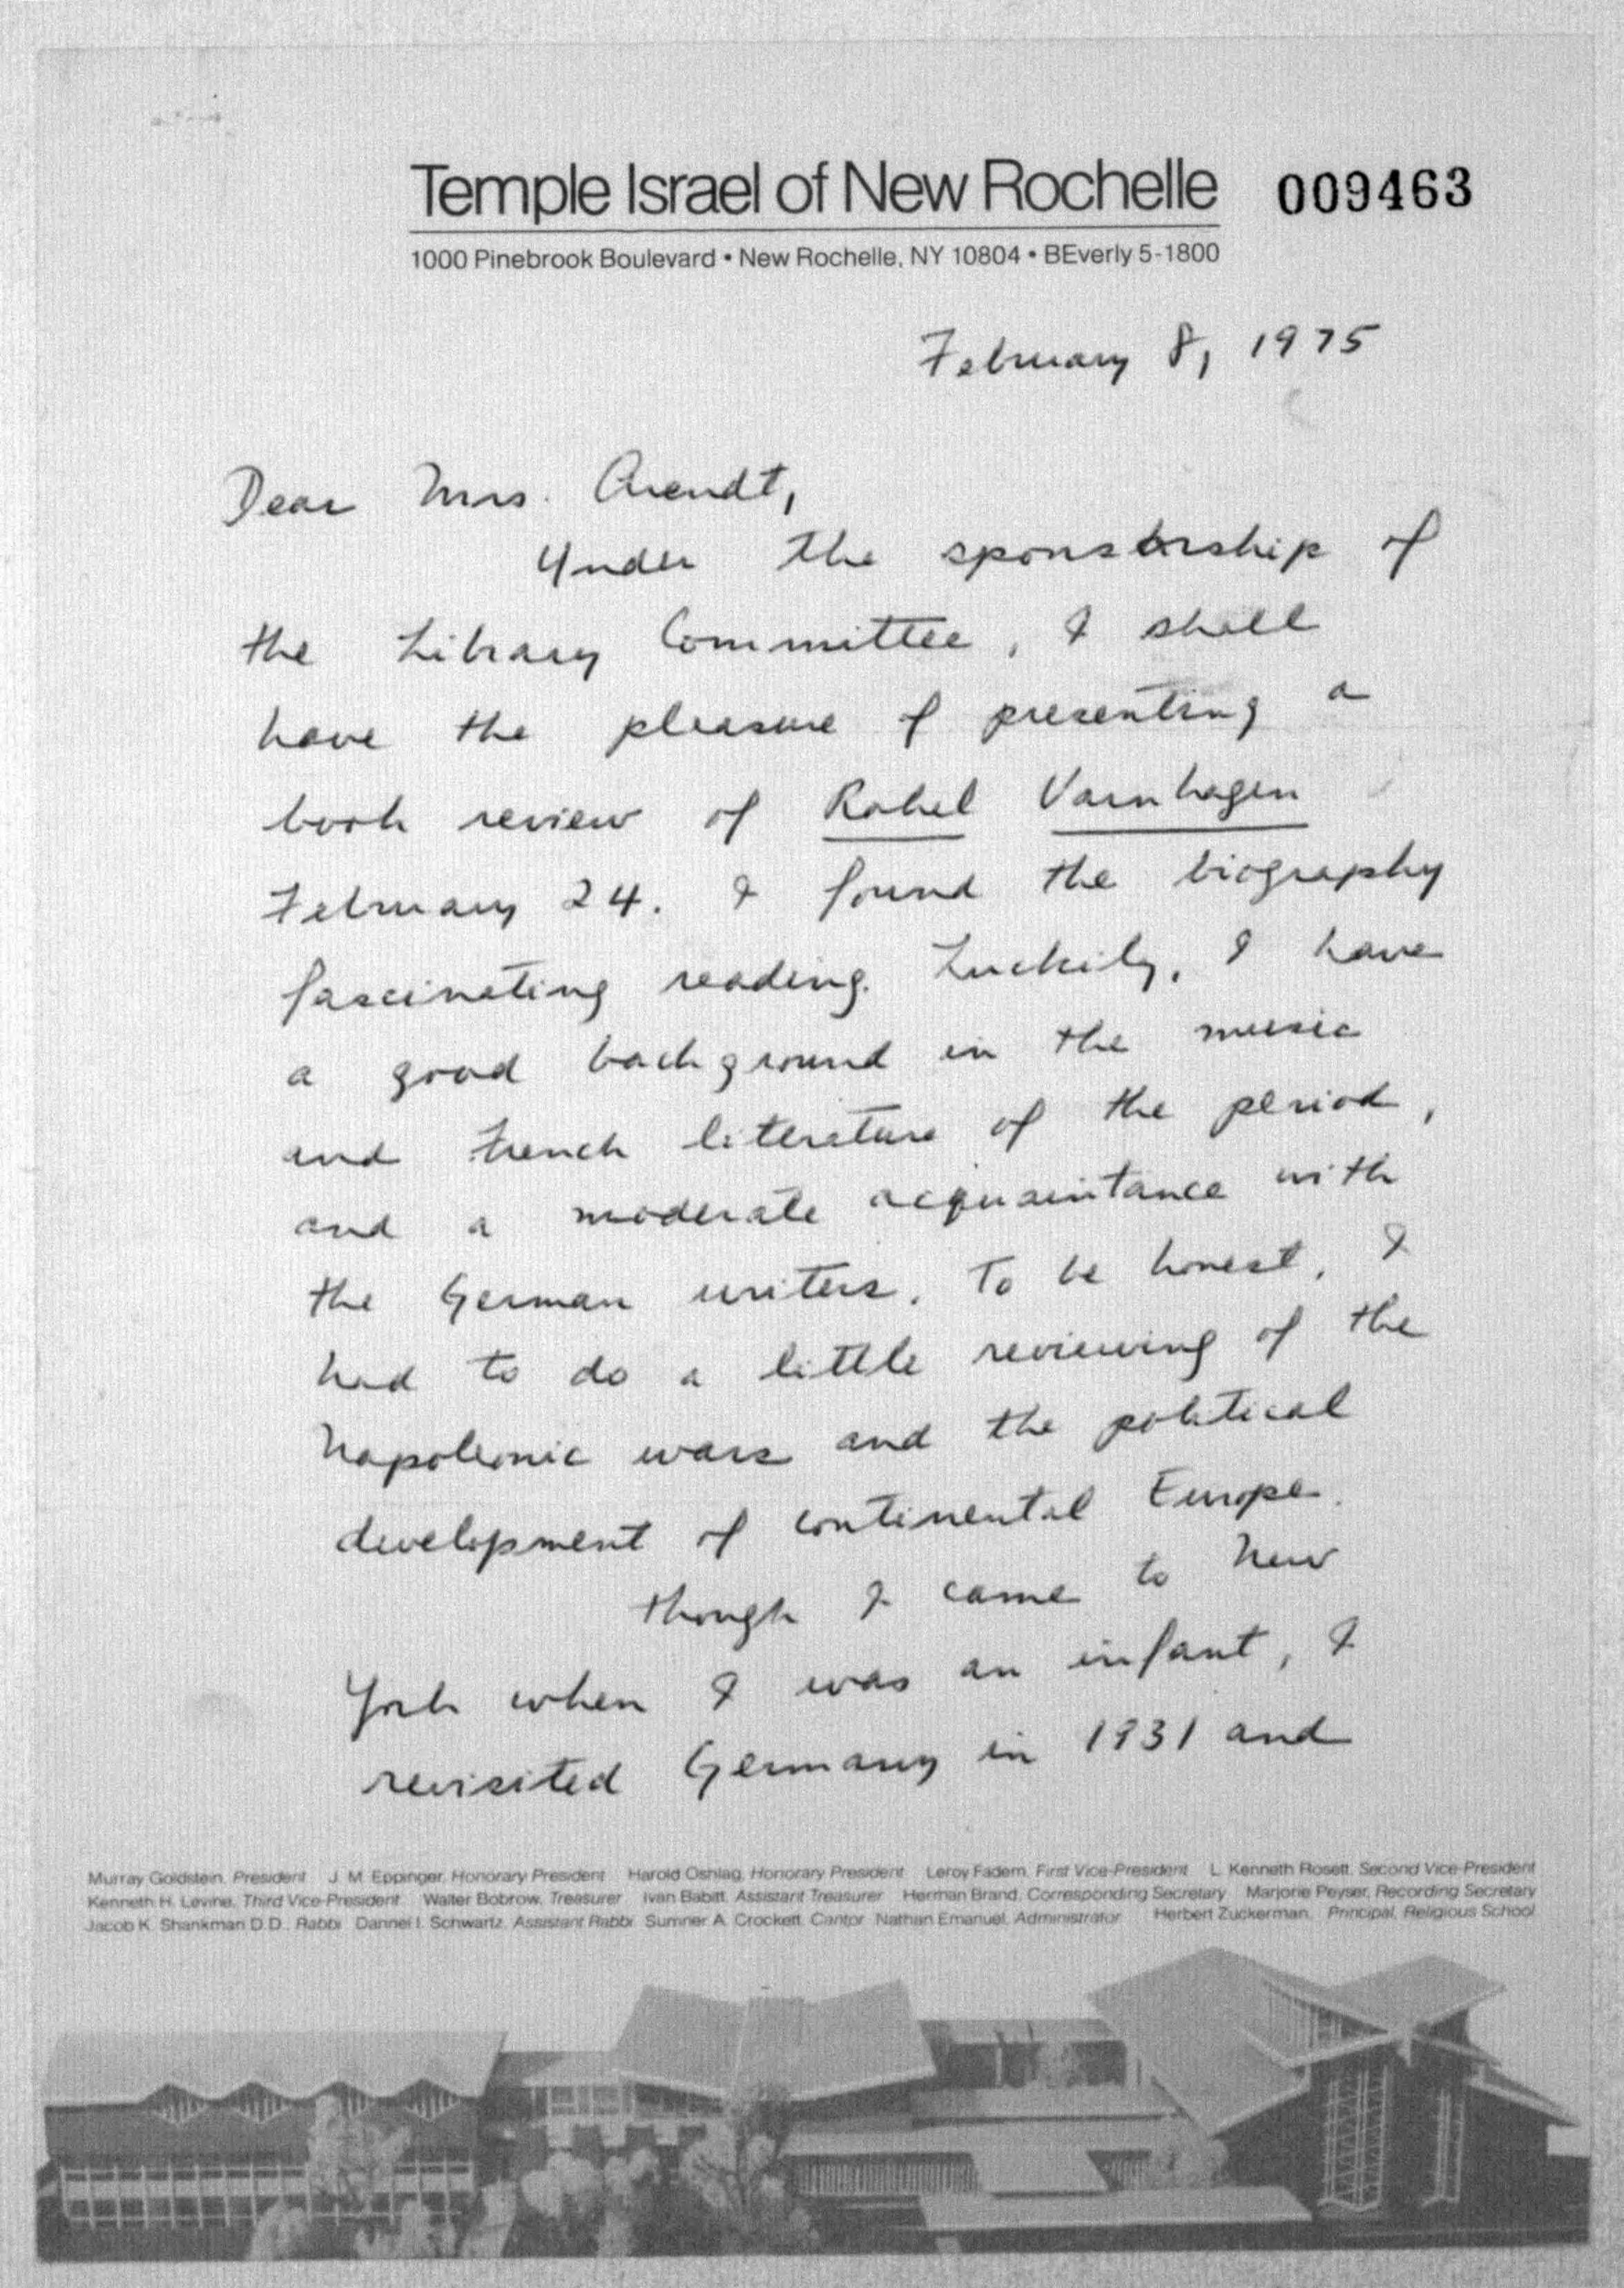 Temple Israel of New Rochelle 009463
1000 Pinebrook Boulevard • New Rochelle, NY 10804 • BEverly 5-1800
February 8, 1975
Dear Mrs. Arendt,
Under the sponsorship of
the Library Committee, I shall
have the pleasure of presenting a
book review of Rahel Varnhagen
February 24. I found the biography
fascinating reading. Luckily, I have
a good background in the music
and French literature of the period,
and a moderate acquaintance with
the German writers. To be honest, I
had to do a little reviewing of the
Napoleonic wars and the political
development of continental Europe.
Though I came to New
York when I was an infant, I
revisited Germany in 1931 and
Murray Goldstein, President J. M. Eppinger, Honorary President Harold Oshlag, Honorary President Leroy Fadem, First Vice-President L. Kenneth Rosett, Second Vice-President
Kenneth H. Levine, Third Vice-President Walter Bobrow, Treasurer Ivan Babitt, Assistant Treasurer Herman Brand, Corresponding Secretary Marjorie Peyser, Recording Secretary
Jacob K. Shankman D.D., Rabbi Dannel I. Schwartz, Assistant Rabbi Sumner A. Crockett, Cantor Nathan Emanuel, Administrator Herbert Zuckerman, Principal, Religious School